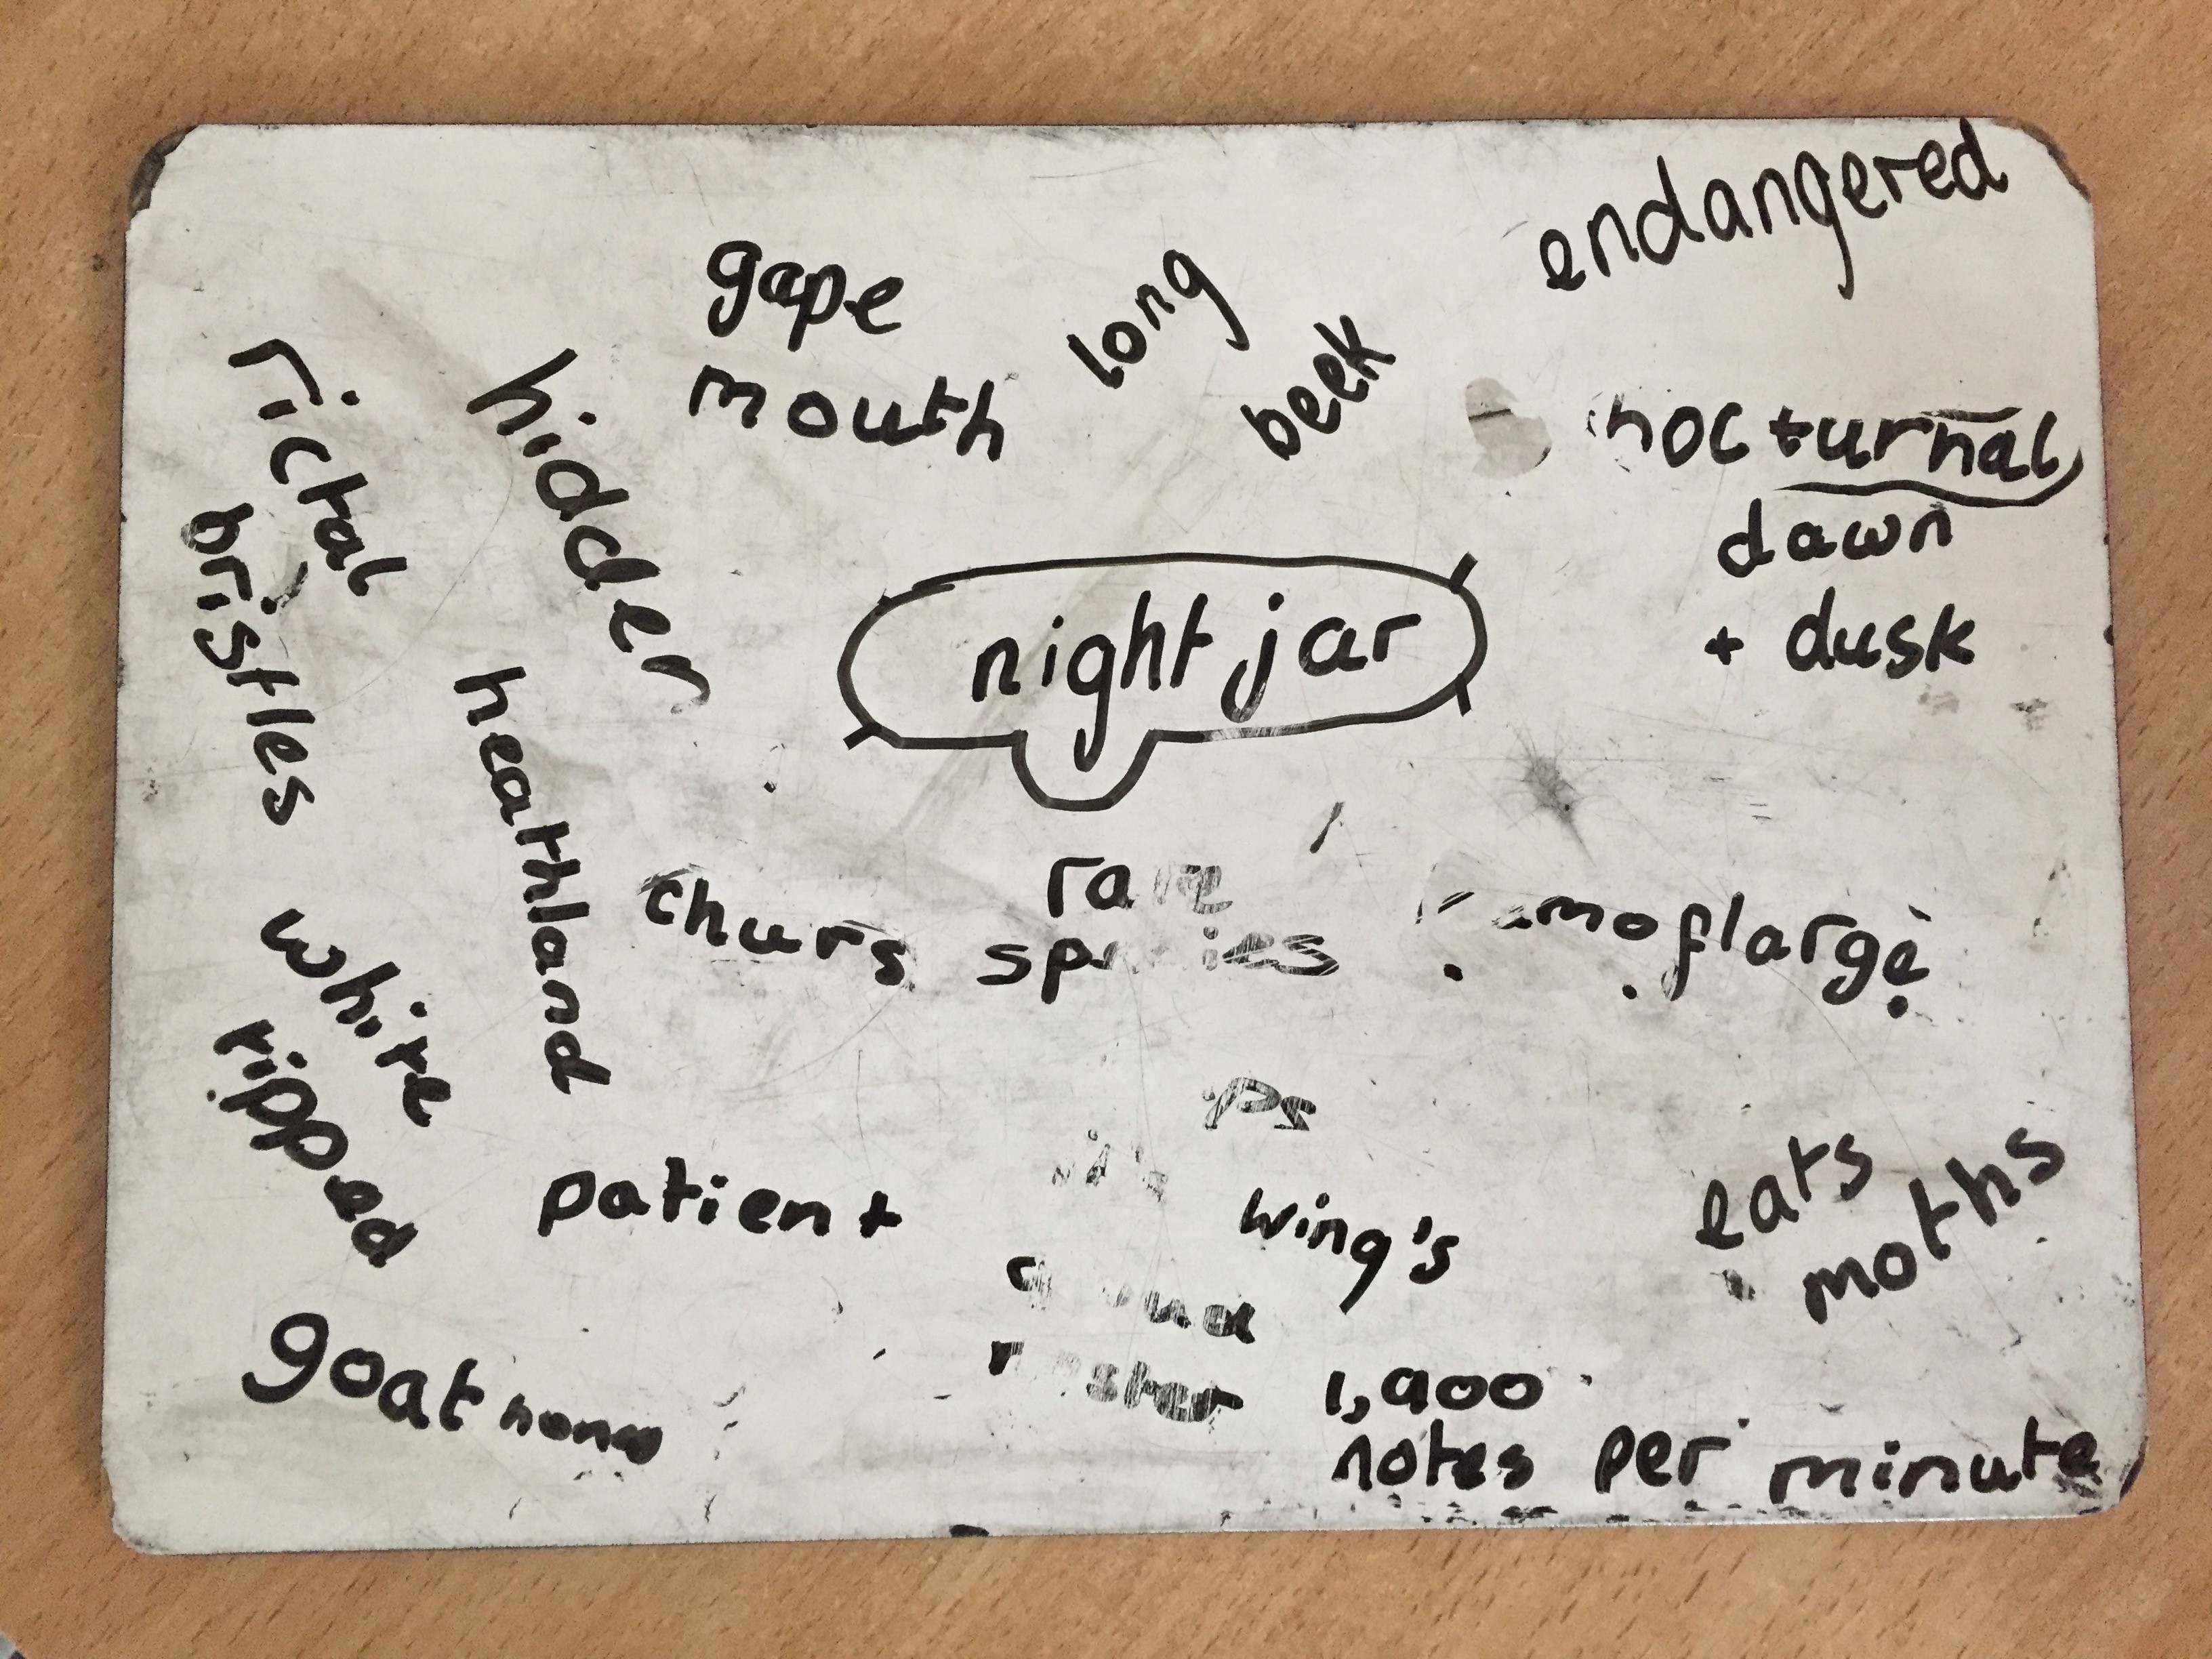 endangered
gape
mouth
long
beek
nocturnal
dawn
+ dusk
rictal
bristles
hidden
night jar
heathland
churs
rare
species
moflarge
white
ripped
patient
wing's
eats
moths
goat
1,900
notes per minute